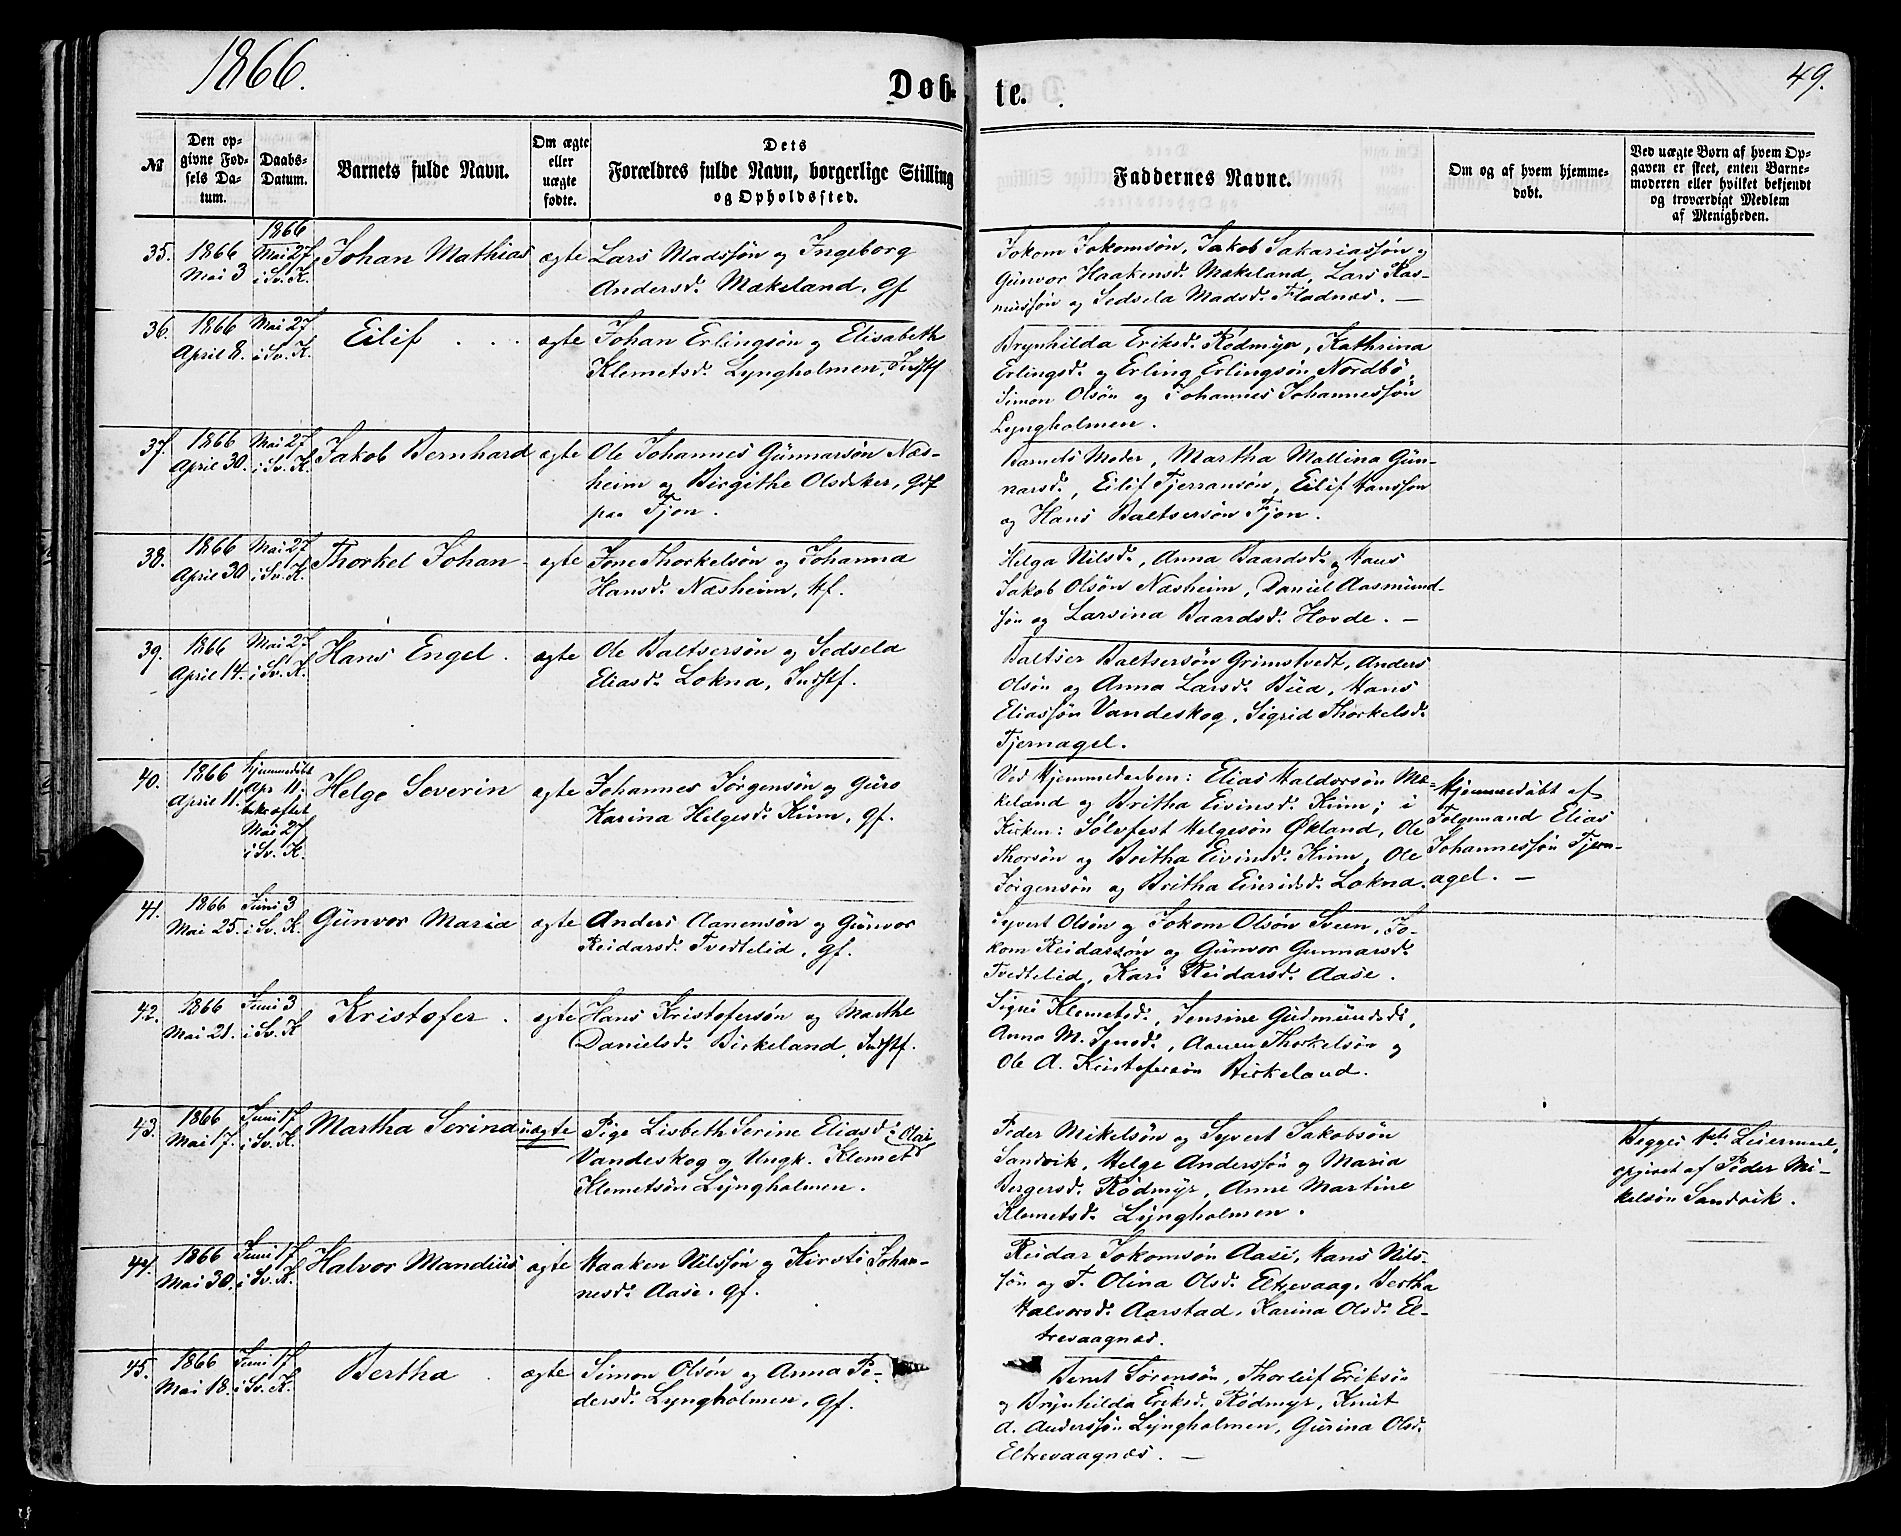 1866.
49.
Døb-
te.
№
Den op-
givne Fød-
sels Da-
tum.
Daabs-
Datum.
Barnets fulde Navn.
Om ægte
eller
uægte
fødte.
Dets
Forældres fulde Navn, borgerlige Stilling
og Opholdssted.
Faddernes Navne.
Om og af hvem hjemme-
døbt.
Ved uægte Børn af hvem Op-
gaven er skeet, enten Barne-
moderen eller hvilket bekjendt
og troværdigt Medlem
af Menigheden.
35.
1866
Mai 3
1866
Mai 27
i Sv. K.
Johan Mathias
ægte
Lars Madssøn og Ingeborg
Andersd. Mækeland, Gf
Jokom Jokomsøn, Jakob Sakariassøn og
Gunvor Haakensd. Mækeland, Lars Ras-
mussøn og Sedsela Madsd. Fladnæs. —
36.
1866
April 8.
Mai 27
i Sv. K.
Eilif . . .
ægte
Johan Erlingsøn og Elisabeth
Klemetsd. Lyngholmen, Indstf
Brynhilda Eriksd. Rødmyr, Kathrina
Erlingsd. og Erling Erlingsøn Nordbø,
Simon Olsøn og Johannes Johannessøn
Lyngholmen.
37.
1866
April 30.
Mai 27
i Sv. K.
Jakob Bernhard
ægte
Ole Johannes Gunnarsøn Næs-
heim og Birgithe Olsdtter, Gf
paa Fjon.
Barnets Moder, Martha Mallina Gun-
narsd., Eilif Tjerransøn, Eilif Hanssøn
og Hans Baltsersøn Fjon.
38.
1866
April 30
Mai 27
i Sv. K.
Thorkel Johan
ægte
Jone Thorkelsøn og Johanna
Hansd. Næsheim, Hf.
Helga Nilsd., Anna Baardsd. og Hans
Jakob Olsøn Næsheim, Daniel Aasmund-
søn og Larsina Baardsd. Hovde. —
39.
1866
April 14.
Mai 27
i Sv. K.
Hans Engel.
ægte
Ole Baltsersøn og Sedsela
Eliasd. Lokna, Indstf.
Baltser Baltsersøn Grimstvedt, Anders
Olsøn og Anna Larsd. Bua, Hans
Eliassøn Vandeskog, Sigrid Thorkelsd.
Tjernagel.
40.
1866
April 11.
hjemmedøbt
Apr 11,
bekræftet
Mai 27
i Sv. K.
Helge Severin
ægte
Johannes Jørgensøn og Guro
Karina Helgesd. Kinn, Gf.
Ved Hjemmedaaben: Elias Haldorsøn Mæ-
keland og Britha Eivinsd. Kinn; i
Kirken: Sølvfest Helgesøn Økland, Ole
Thorsøn og Britha Eivinsd. Kinn, Ole
Jørgensøn og Britha Einridsd. Lokna.
Hjemmedøbt af
Følgemand Elias
Johannessøn Tjern-
agel. —
41.
1866
Mai 25.
Juni 3
i Sv. K.
Gunvor Maria
ægte
Anders Aanensøn og Gunvor
Reidarsd. Tvedtelid, Gf.
Syvert Olsøn og Jokom Olsøn Sveen, Jo-
kom Reidarsøn og Gunvor Gunnarsd.
Tvedtelid, Kari Reidarsd. Aase.
42.
1866
Mai 21.
Juni 3
i Sv. K
Kristofer.
ægte
Hans Kristofersøn og Marthe
Danielsd. Birkeland, Indstf.
Signi Klemetsd., Jensine Gudmundsd.,
Anna M. Jensd., Aanen Thorkelsøn og
Ole A. Kristofersøn Birkeland.
43.
1866
Mai 17.
Juni 17
i Sv. K.
Martha Serina
uægte
Pige Lisbeth Serine Eliasd.
Vandeskog og Ungk. Klemet
Klemetsøn Lyngholmen.
Peder Mikelsøn og Syvert Jakobsøn
Sandvik, Helge Anderssøn og Maria
Bergersd. Rødmyr, Anne Martine
Klemetsd. Lyngholmen.
Begges 1ste Leiermaal,
opgivet af Peder Mi-
kelsøn Sandvik.
44.
1866
Mai 30.
Juni 17
i Sv. K.
Halvor Mandius
ægte
Haaken Nilssøn og Kirsti Johan-
nesd. Aase, Gf.
Reidar Jokomsøn Aase, Hans Nils-
søn og T. Olina Olsd. Eltrevaag, Bertha
Halvorsd. Aarstad, Karina Olsd. El-
trevaagnæs.
45.
1866
Mai 18.
Juni 17
i Sv. K.
Bertha .
ægte
Simon Olsøn og Anna Pe-
dersd. Lyngholmen, Gf.
Bernt Sørensøn, Thorleif Eriksøn
og Brynhilda Eriksd. Rødmyr, Knut
A. Anderssøn Lyngholmen, Gurina Olsd.
Eltrevaagnæs. —